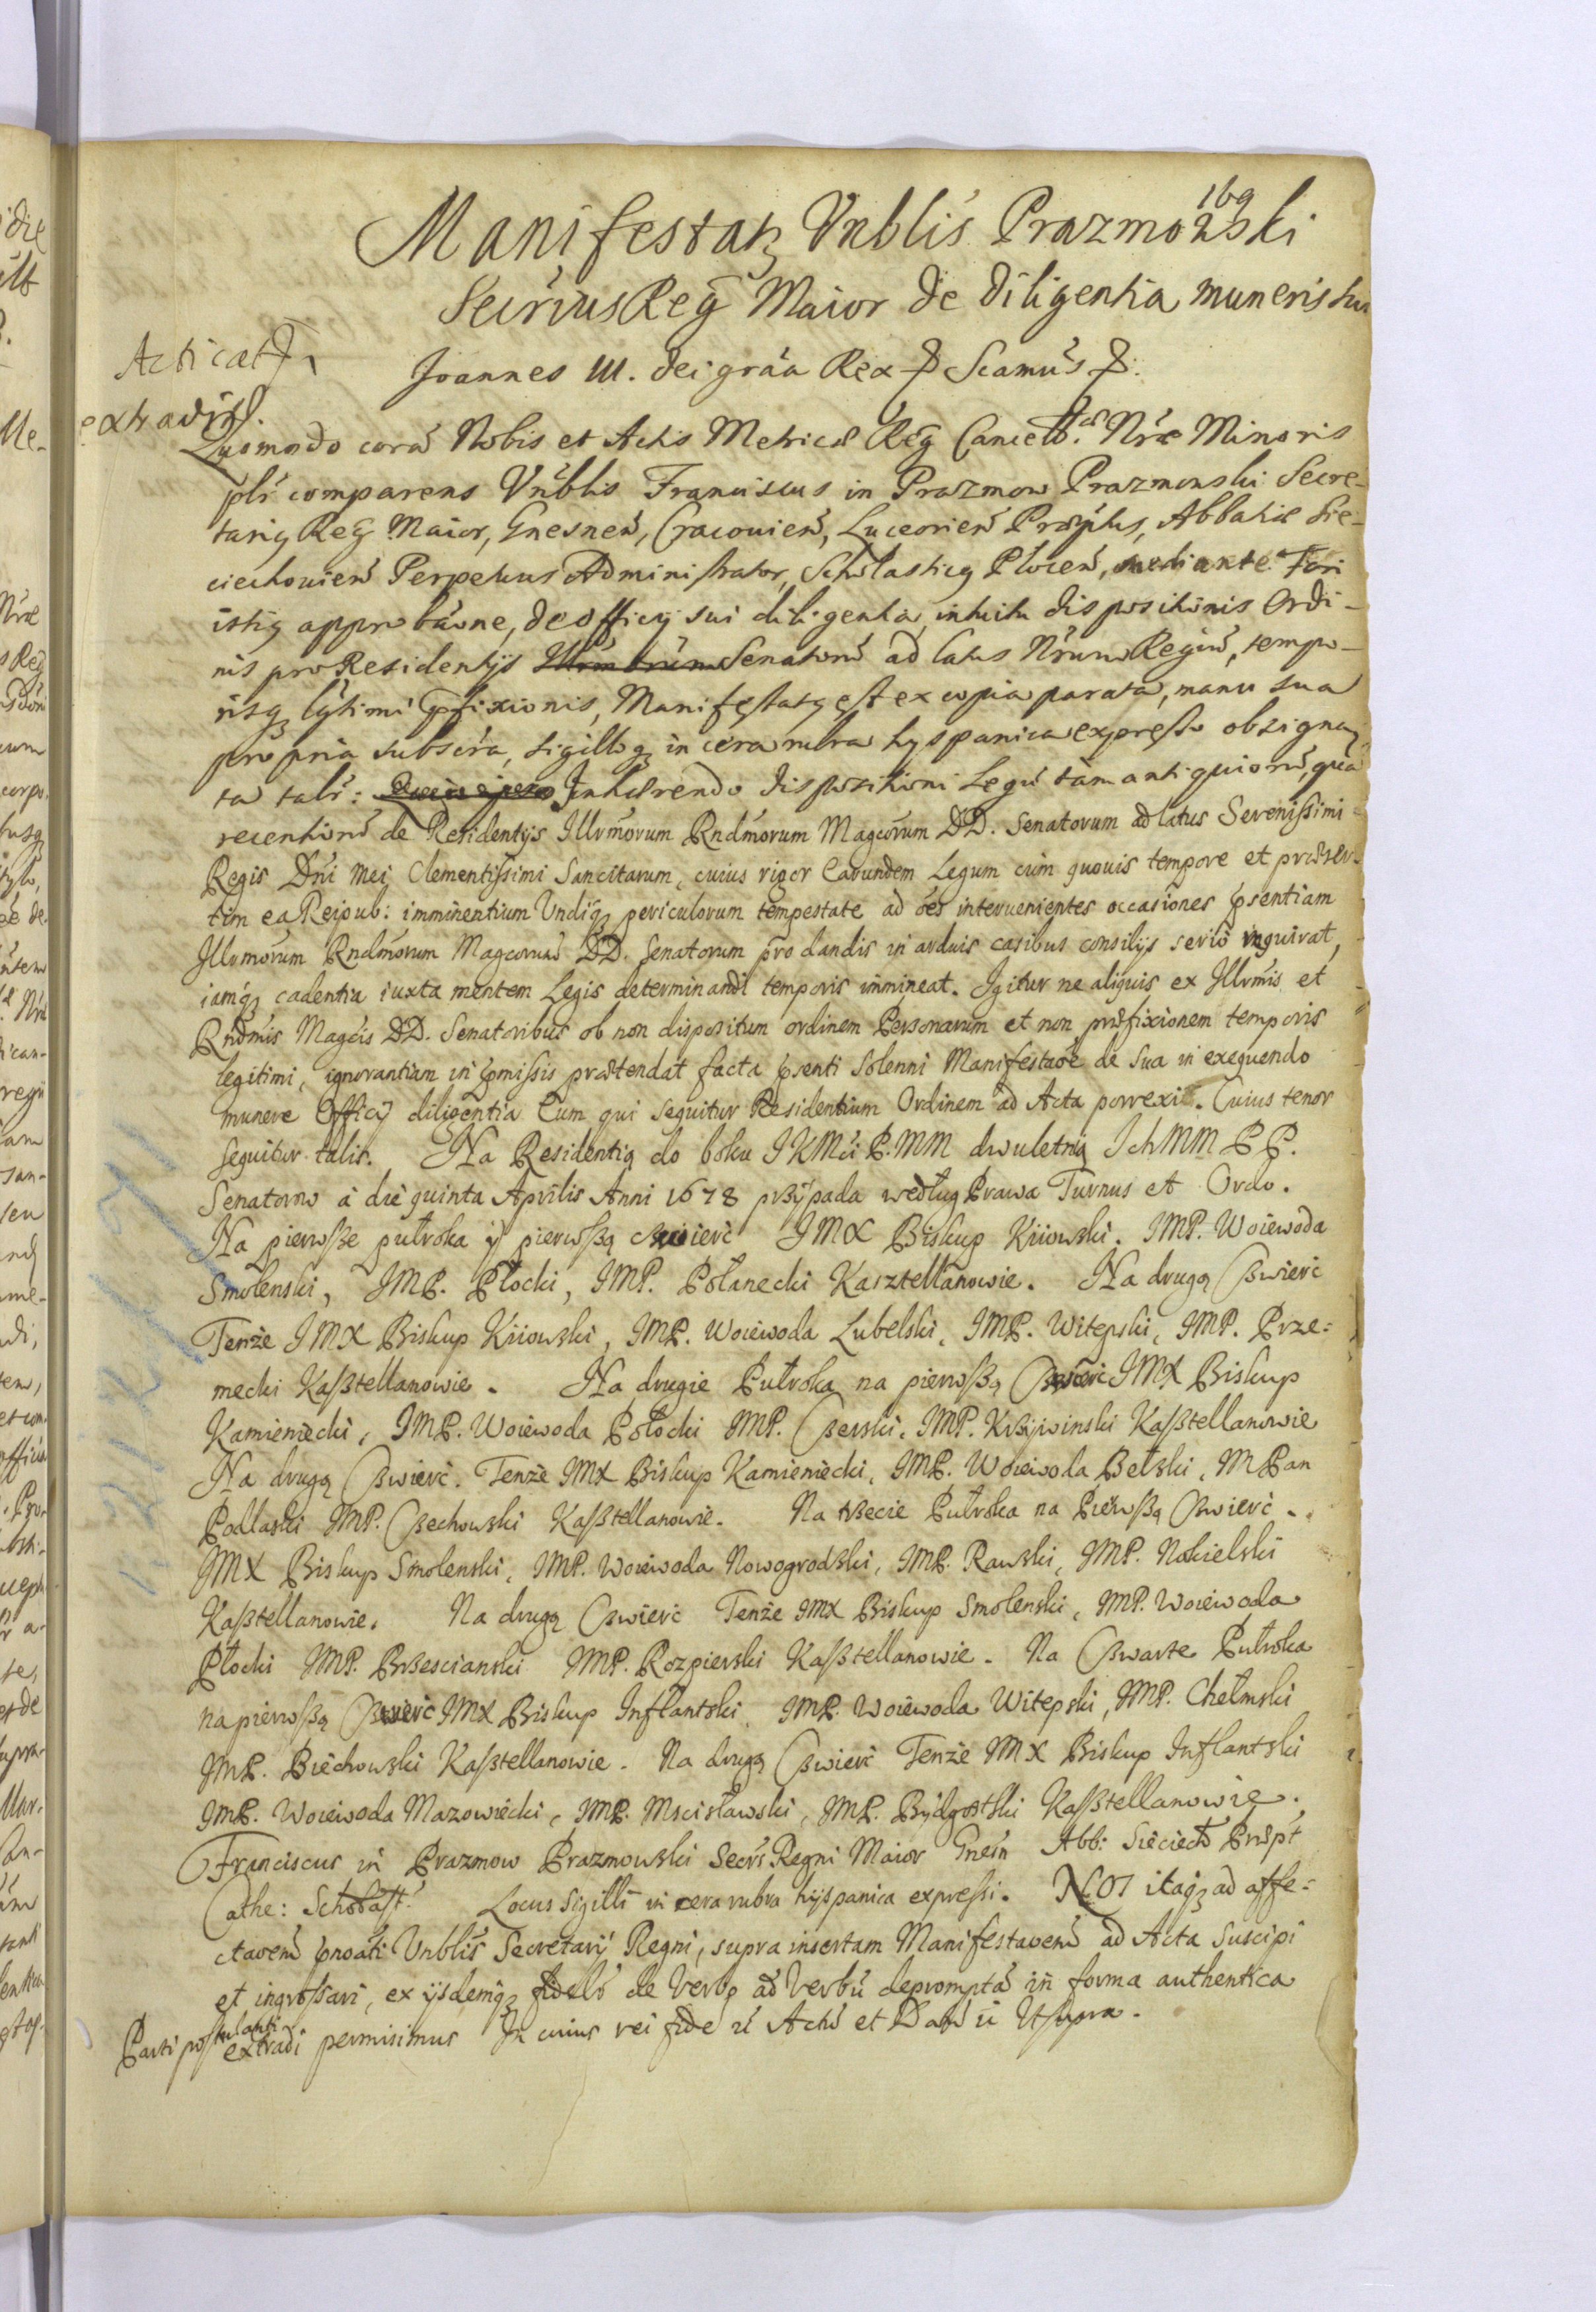 169
Manifestatq Vnblis Prazmowski
Secrius Reg Maior de diligentia muneris sui
Acticat
extradit.
Joannes III. Dei gráa Rex Scamus
Quomodo corá Nobis et Actis Metricæ Reg Cancell. Nræ Minoris
plr comparens Vnblis Franciscus in Prazmow Prazmowski Secre-
tariq Reg Maior, Gnesnen, Cracouien, Luceorien Præptus, Abbatiæ Sie-
ciechouien Perpetuus Administrator, Scholasticq Plocen, mediante Fori
istiq approbaone, de officij sui diligentia, intuitu dispositionis Ordi-
nis pro Residentijs Senatorú ad latus Nrum Regiú, tempo-
risq lgtimi pfixionis, Manifestatq est ex copia parata, manu sua
propria subscra, sigilloq in cera rubra hyspanica expresso obsigna-
ta talr: Inhærendo dispositioni Legú tám antiquiorú, quá
recentiorú de Residentijs Illrmorum Rndmorum Magcorum DD. Senatorum ad latus Serenissimi
Regis Dni Mei Clementissimi Sancitarum, cuius rigor Earundem Legum cúm quouis tempore et præser-
tim ea Reipub: imminentium Vndiq periculorum tempestate ad oes interuenientes occasiones psentiam
Illrmorum Rndmorum Magcorum DD. Senatorum pro dandis in arduis casibus consilijs serió inquirat,
iamq cadentia iuxta mentem Legis determinandi temporis immineat. Igitur ne aliquis ex Illrmis et
Rndmis Magcis DD. Senatoribus ob non dispositum ordinem Personarum et non præfixionem temporis
legitimi, ignorantiam in pmissis prætendat facta psenti Solenni Manifestaoe de sua in exequendo
munere Officij diligentia Eum qui sequitur Residentium Ordinem ad Acta porrexit. Cuius tenor
sequitur talis. Na Residentią do boku JKMci P.MM dwuletnią JchMM PP.
Senatorow á die quinta Aprilis Anni 1678 przÿpada według Prawa Turnus et Ordo.
Na pierwsze pułroka ÿ pierwszą czwierć JMX Biskup Kiiowski. JMP. Woiewoda
Smolenski, JMP. Płocki, JMP. Połanecki Kasztellanowie. Na drugą Czwierć
Tenże JMX Biskup Kiiowski, JMP. Woiewoda Lubelski, JMP. Witepski, JMP. Prze-
mecki Kasztellanowie. Na drugie Pułroka na pierwszą Czwierć JMX Biskup
Kamieniecki, JMP. Woiewoda Połocki JMP. Czerski, JMP. Krzÿwinski Kasztellanowie
Na drugą Czwierć. Tenże JMX Biskup Kamieniecki, JMP. Woiewoda Bełzki, JMPan
Podlaski JMP. Czechowski Kasztellanowie. Na trzecie Pułroka na Pierwszą Czwierć.
JMX Biskup Smolenski, JMP. Woiewoda Nowogrodzki, JMP. Rawski, JMP. Nakielski
Kasztellanowie. Na drugą Czwierć Tenże JMX Biskup Smolenski, JMP. Woiewoda
Płocki JMP. Brzescianski JMP. Rozpierski Kasztellanowie. Na Czwarte Pułroka
na pierwszą Czwierć JMX Biskup Inflantski, JMP. Woiewoda Witepski, JMP. Chełmski
JMP. Biechowski Kasztellanowie. Na drugą Czwierć Tenże JMX Biskup Inflantski
JMP. Woiewoda Mazowiecki, JMP. Mscisławski, JMP. Bÿdgostski Kasztellanowie.
Franciscus in Prazmow Prazmowski Secrs Regni Maior Gnesn Abb: Sieciech Præpt
Cathe: Scholast. Locus Sigilli in cera rubra hÿspanica expressi. NOS itaq ad affe-
ctaoem pnoati Vnblis Secretarÿ Regni, supra insertam Manifestaoem ad Acta suscipi
et ingrossari, ex ijsdemq fidelr de Verbo ad Verbú depromptá in forma authentica
Parti postulanti
extradi permisimus In cuius rei fidé Actú et Datú ú Vt supra.